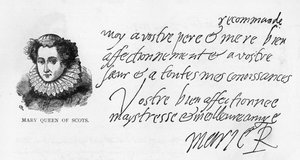 recommande
moy a vostre pere & mere bien
affectionnement & a vostre
seur & a toutes mes conoissances
Vostre bien affectionnee
maystresse & melleure amye
Marie R
MARY QUEEN OF SCOTS.